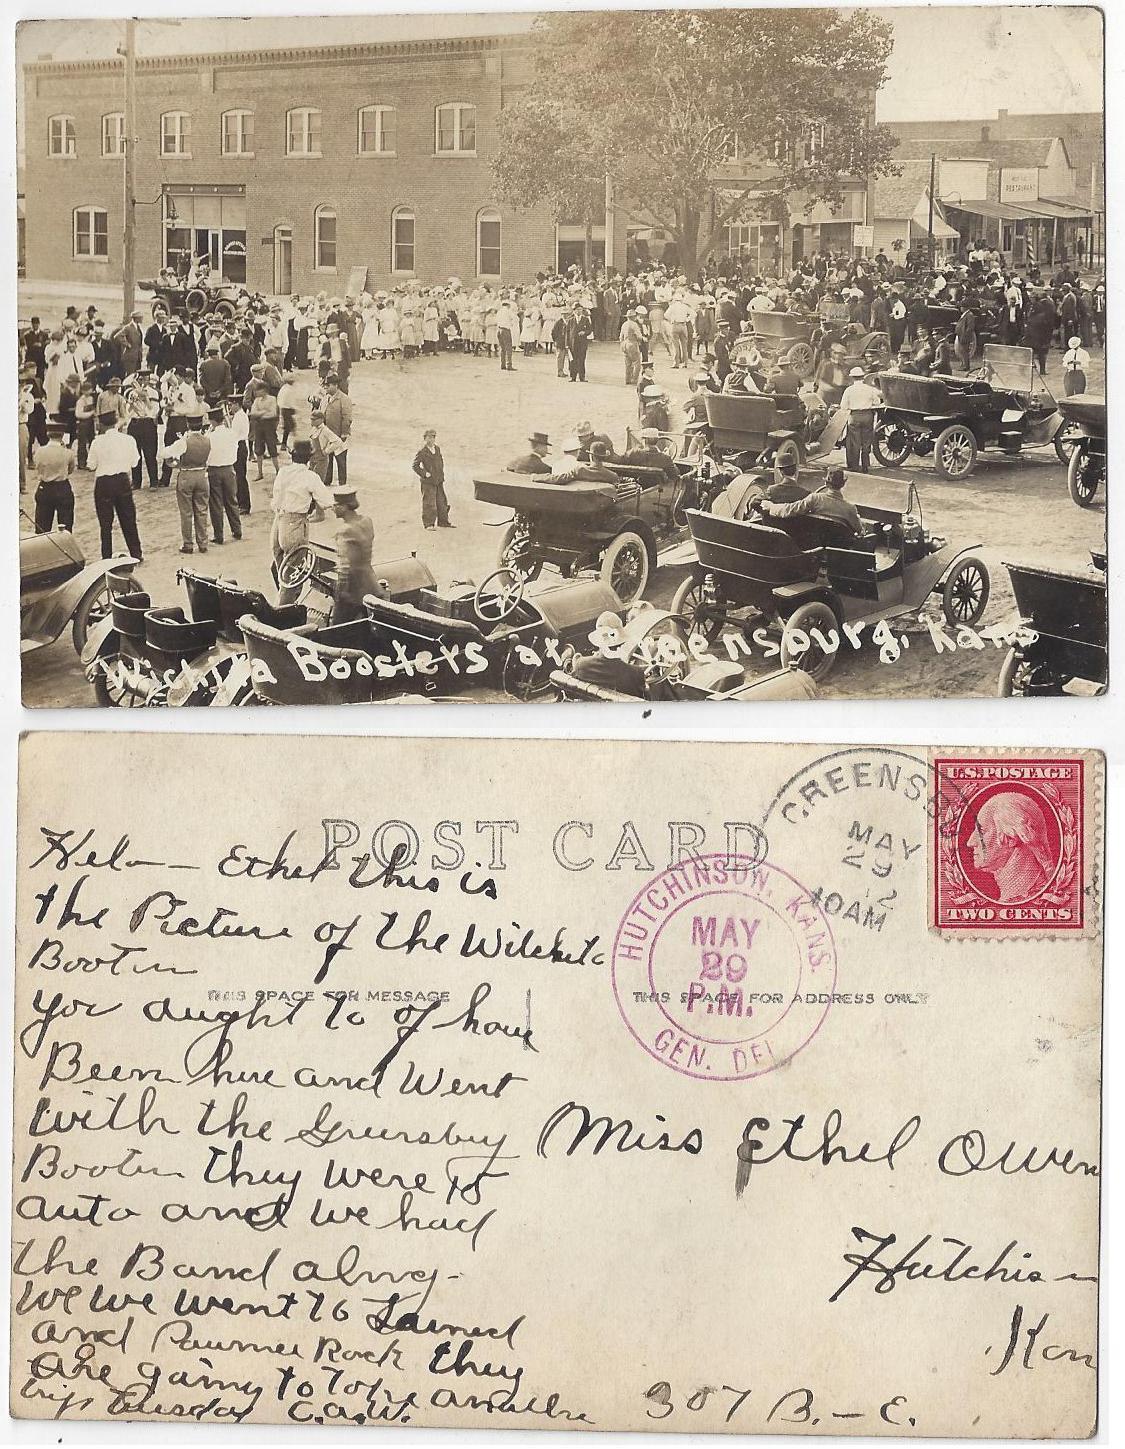 RESTAURANT
Wichita Boosters at Greensburg, Kans
POST CARD
THIS SPACE FOR MESSAGE
THIS SPACE FOR ADDRESS ONLY
GREENSBU
MAY
29
10AM
HUTCHINSON, KANS.
MAY
29
P.M.
GEN. DEL
U.S. POSTAGE
TWO CENTS
Helo - Ethel this is
the Picture of the Witchita
Boosters
you aught to of have
Been here and Went
with the Greensburg
Boosters they were 15
auto and we had
the Band along-
we we went to Larned
and Pawnee Rock they
are going to take another
trip Tuesday C.A.W.
Miss Ethel Owen
Hutchison
Kan
307 B. - E.